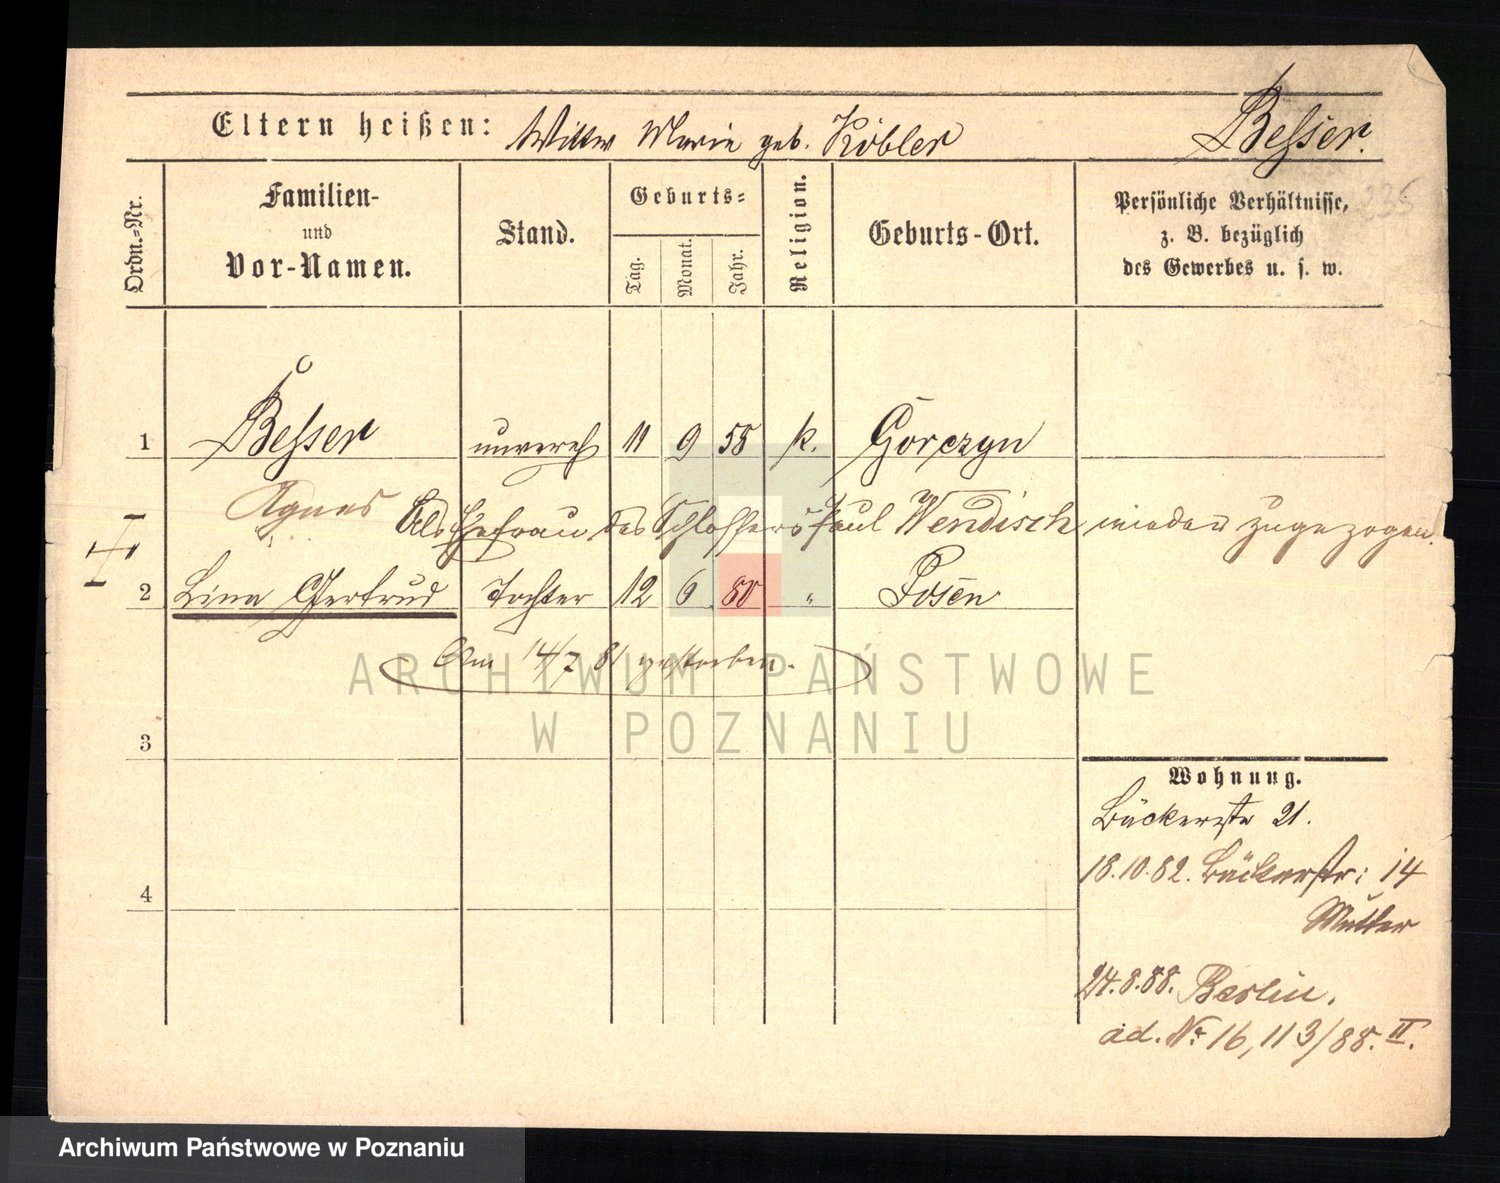 Eltern heißen: Wittw Marie geb. Köbler Besser.
235
Ordn.=Nr.
Familien-
und
Vor-Namen.
Stand.
Geburts=
Tag.
Monat.
Jahr.
Religion.
Geburts-Ort.
Persönliche Verhältnisse,
z. B. bezüglich
des Gewerbes u. s. w.
1 Besser unvereh 11 9 55 k. Gorczyn
Agnes Als Ehefrau des Schlossers Paul Wendisch wieder zugezogen.
2 Lina Gertrud Tochter 12 6 80 " Posen
Am 14/7 81 gestorben.
3
4
Wohnung.
Bäckerstr 21.
18.10.82. Bäckerstr: 14
Mutter
24.8.88. Berlin.
ad. No 16,113/88. II.
ARCHIWUM PAŃSTWOWE
W POZNANIU
Archiwum Państwowe w Poznaniu